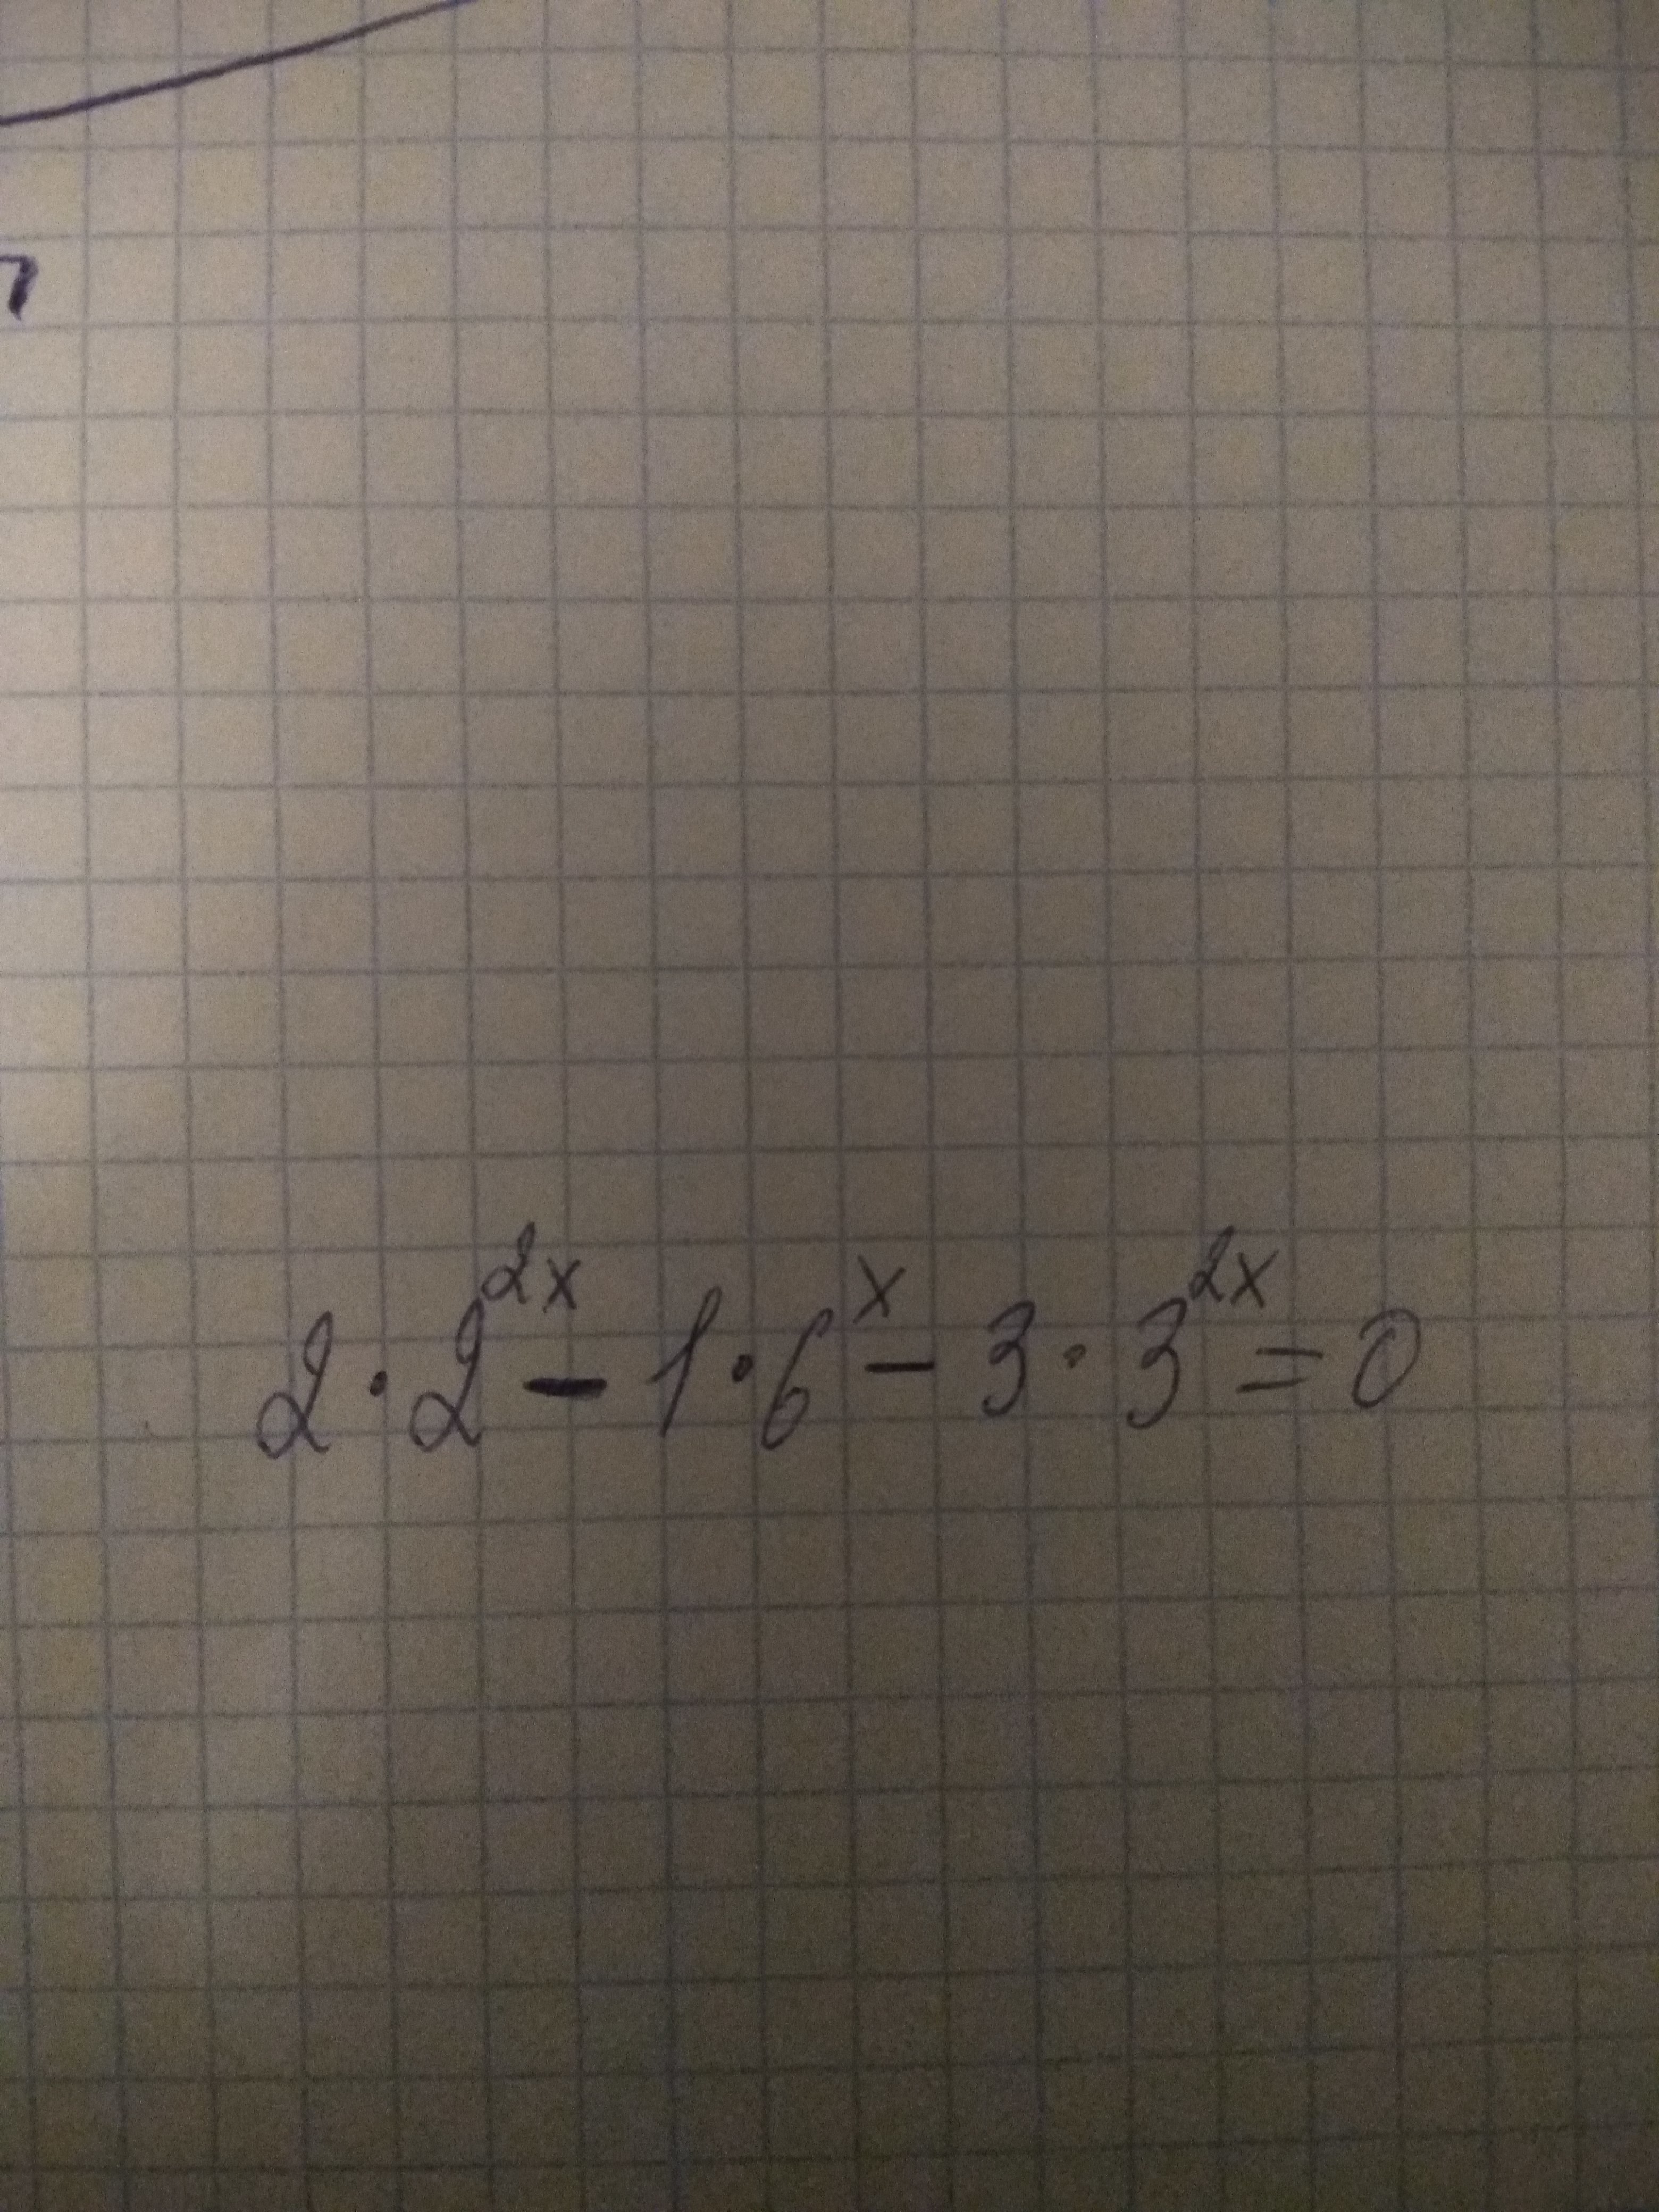 2 · 2^{2x} - 1 · 6^x - 3 · 3^{2x} = 0